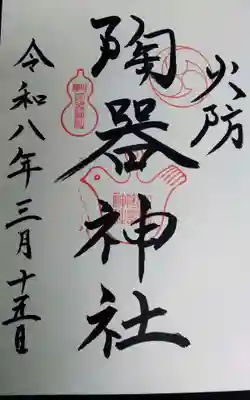 火防
陶器神社
令和八年三月十五日